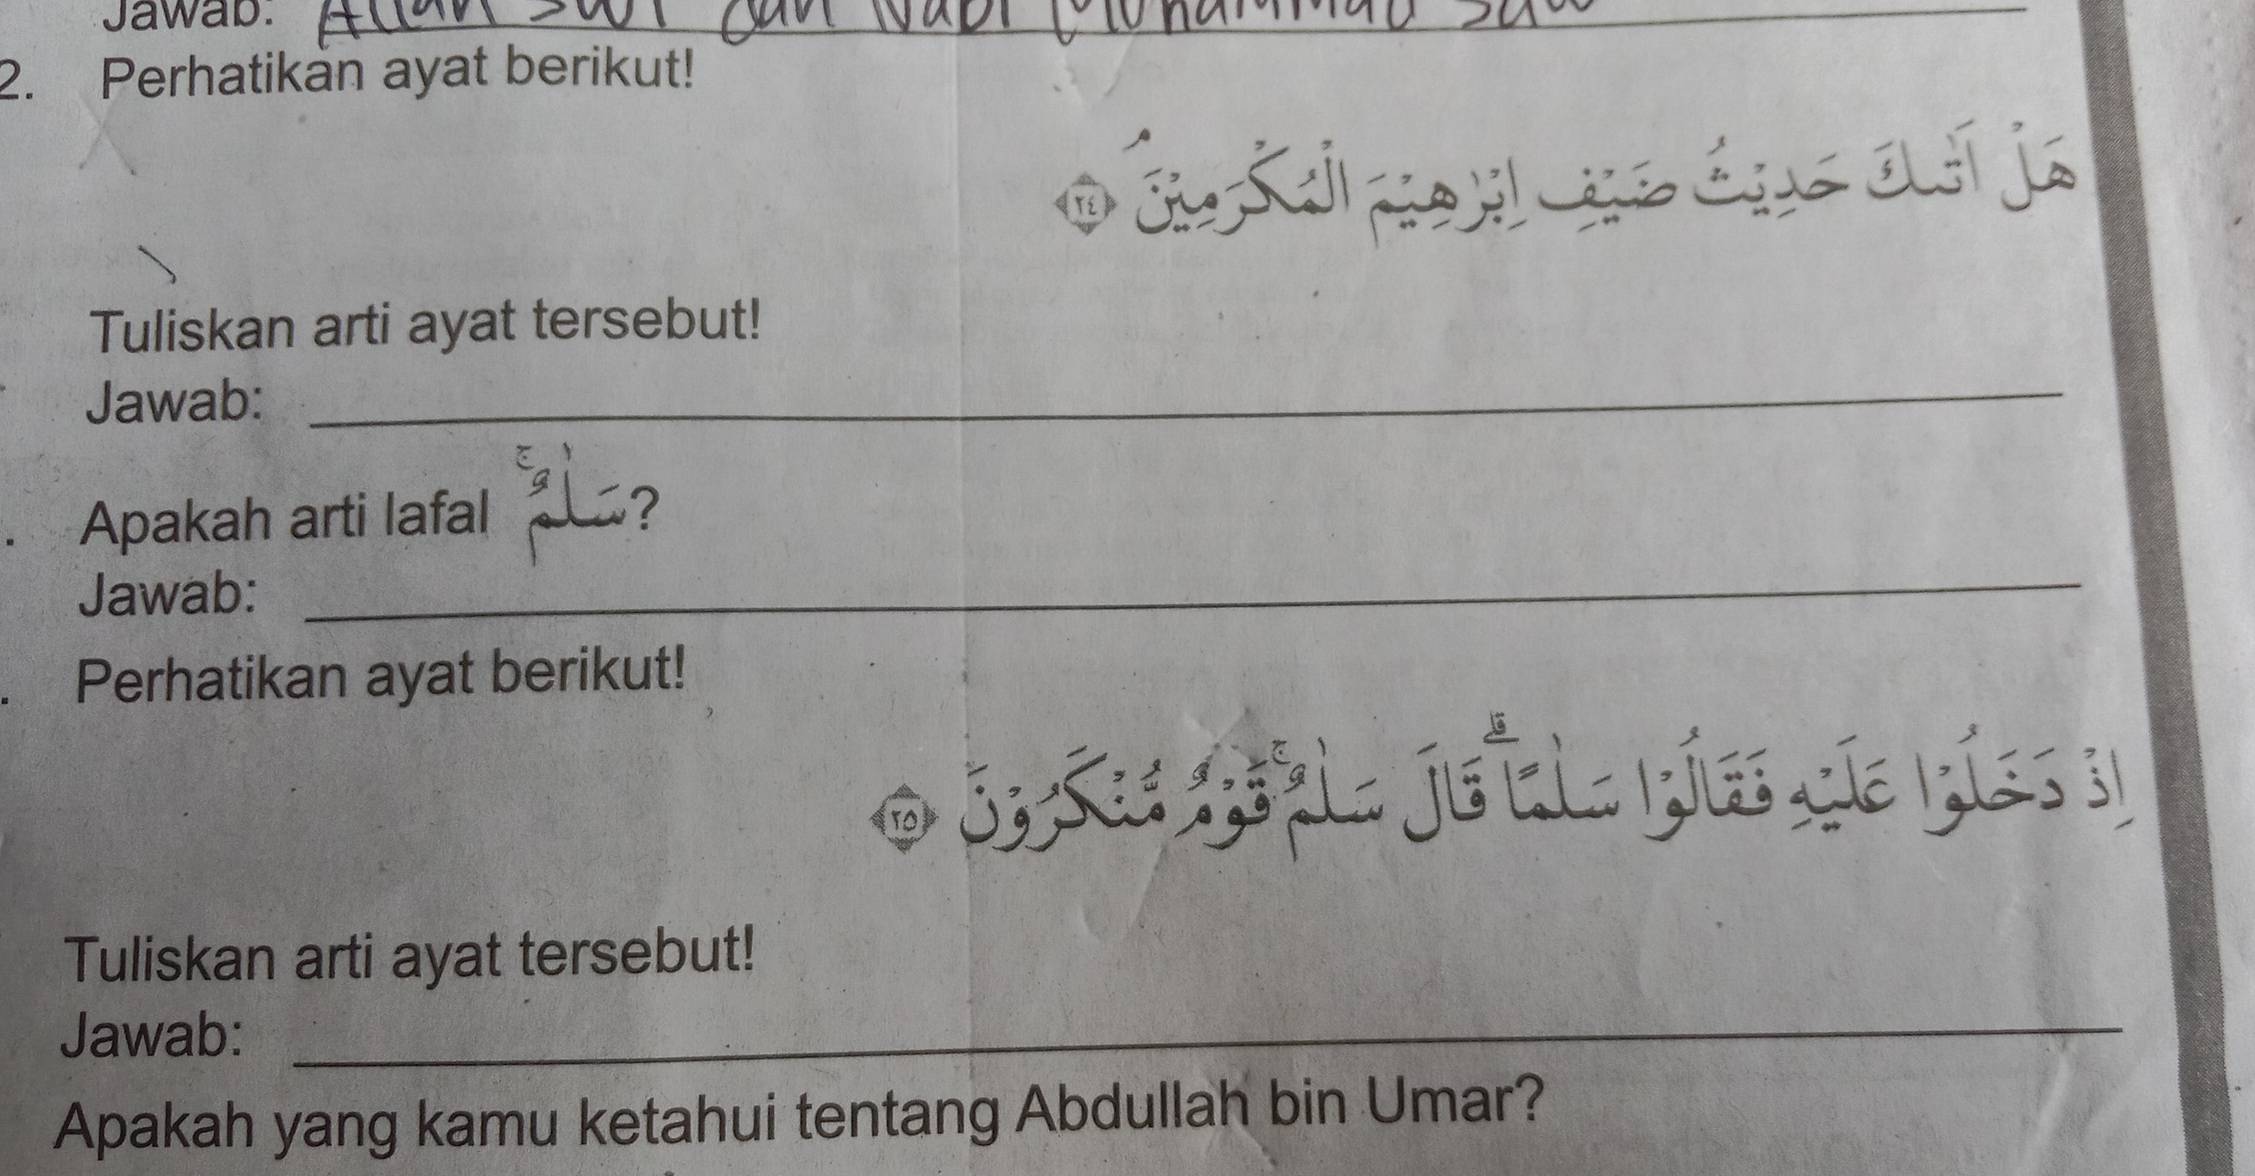 Jawab: Allah swt dan Nabi Muhammad saw
2. Perhatikan ayat berikut!
هَلْ اَتٰىكَ حَدِيْثُ ضَيْفِ اِبْرٰهِيْمَ الْمُكْرَمِيْنَۘ ٢٤
Tuliskan arti ayat tersebut!
Jawab:
. Apakah arti lafal سَلٰمٌۚ?
Jawab:
. Perhatikan ayat berikut!
اِذْ دَخَلُوْا عَلَيْهِ فَقَالُوْا سَلٰمًاۗ قَالَ سَلٰمٌۚ قَوْمٌ مُّنْكَرُوْنَ ٢٥
Tuliskan arti ayat tersebut!
Jawab:
Apakah yang kamu ketahui tentang Abdullah bin Umar?